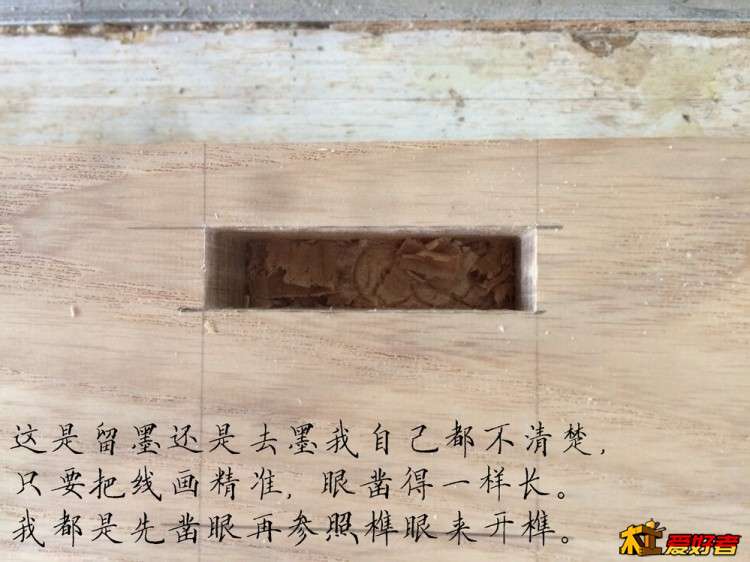 这是留墨还是去墨我自己都不清楚，
只要把线画精准，眼凿得一样长。
我都是先凿眼再参照榫眼来开榫。
木工爱好者